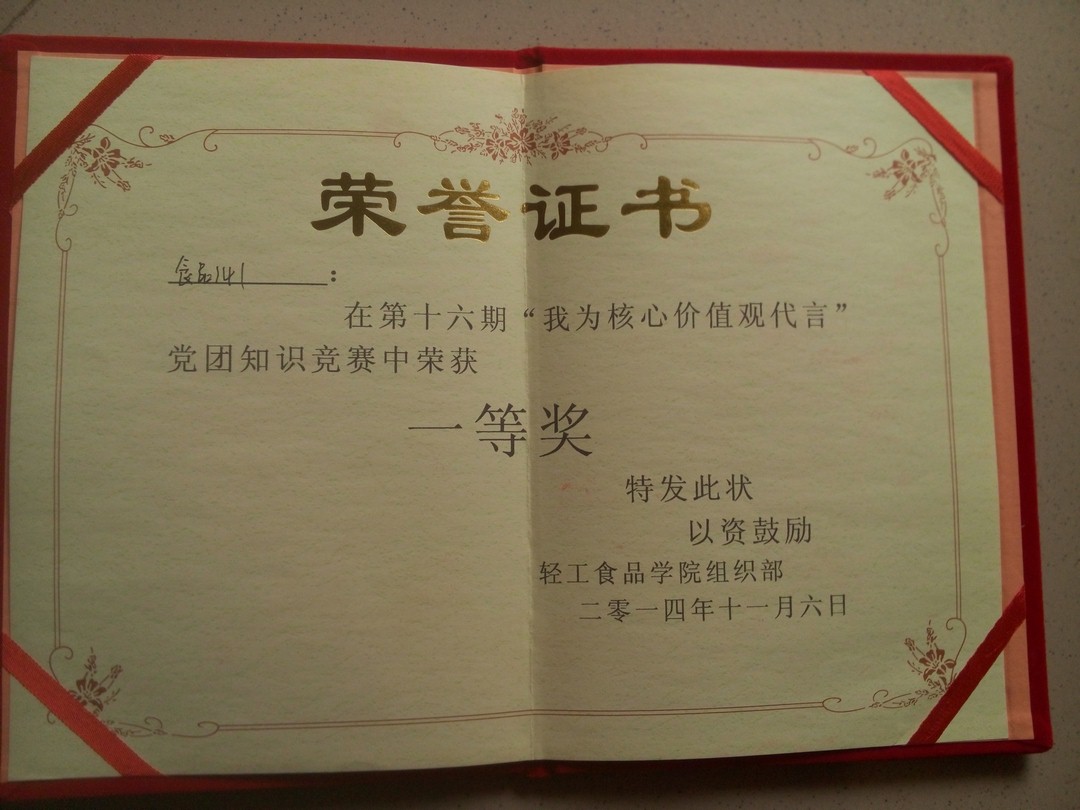 荣誉证书
食品141：
在第十六期“我为核心价值观代言”
党团知识竞赛中荣获
一等奖
特发此状
以资鼓励
轻工食品学院组织部
二零一四年十一月六日